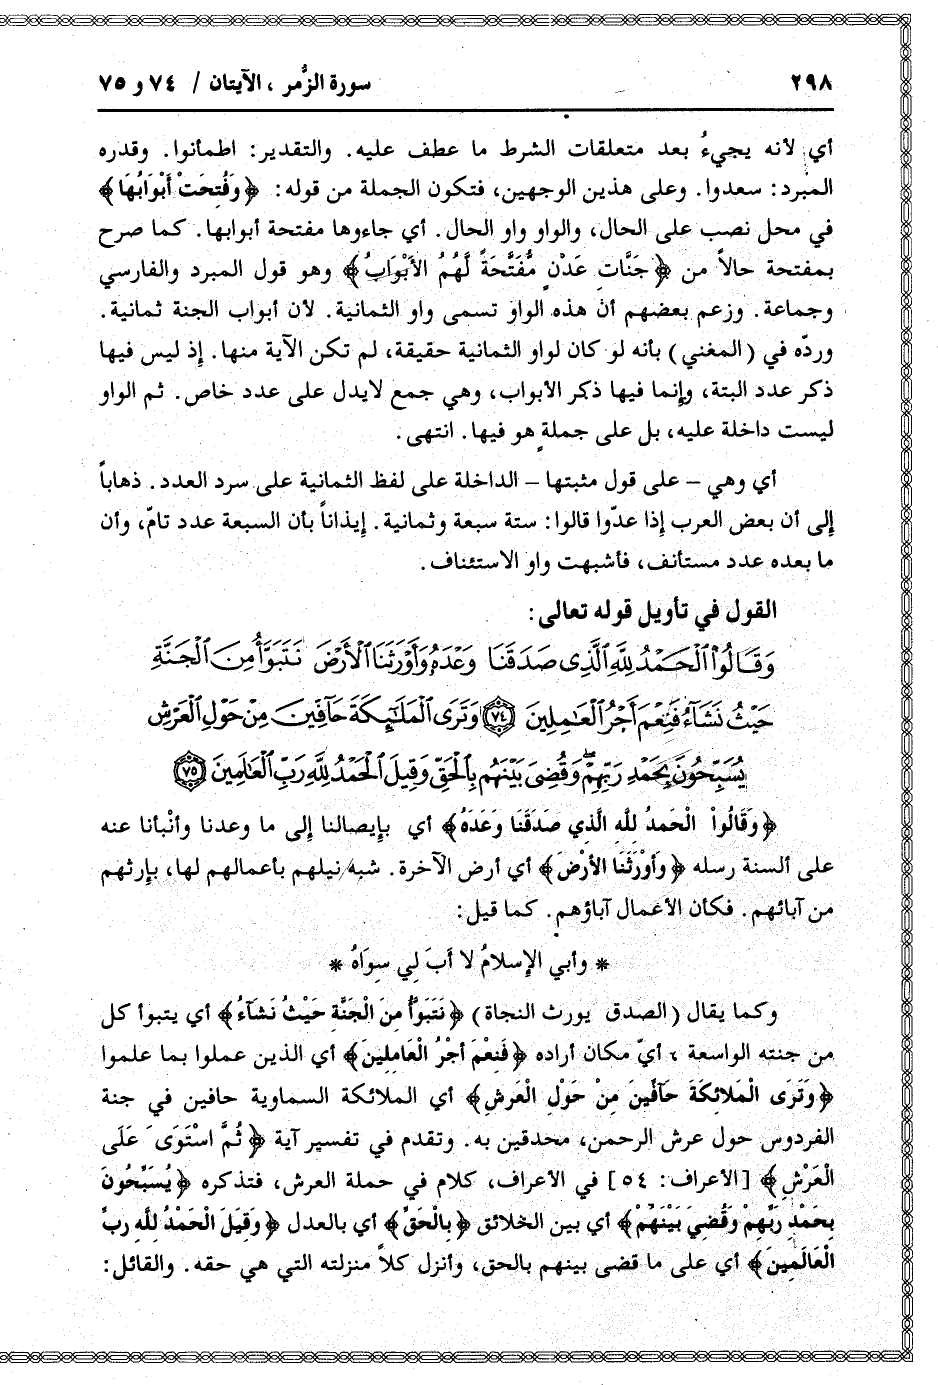 ٢٩٨
سورة الزُّمر ، الآيتان / ٧٤ و ٧٥
أي لأنه يجيءُ بعد متعلقات الشرط ما عطف عليه. والتقدير: اطمأنوا. وقدره
المبرد: سعدوا. وعلى هذين الوجهين، فتكون الجملة من قوله: ﴿وَفُتِحَتْ أَبْوَابُهَا﴾
في محل نصب على الحال، والواو واو الحال. أي جاءوها مفتحة أبوابها. كما صرح
بمفتحة حالاً من ﴿جَنَّاتِ عَدْنٍ مُّفَتَّحَةً لَّهُمُ الأَبْوَابُ﴾ وهو قول المبرد والفارسي
وجماعة. وزعم بعضهم أن هذه الواو تسمى واو الثمانية. لأن أبواب الجنة ثمانية.
وردّه في (المغني) بأنه لو كان لواو الثمانية حقيقة، لم تكن الآية منها. إذ ليس فيها
ذكر عدد البتة، وإنما فيها ذكر الأبواب، وهي جمع لايدل على عدد خاص. ثم الواو
ليست داخلة عليه، بل على جملةٍ هو فيها. انتهى.
أي وهي – على قول مثبتها – الداخلة على لفظ الثمانية على سرد العدد. ذهاباً
إلى أن بعض العرب إذا عدّوا قالوا: ستة سبعة وثمانية. إيذاناً بأن السبعة عدد تامّ، وأن
ما بعده عدد مستأنف، فأشبهت واو الاستئناف.
القول في تأويل قوله تعالى:
وَقَالُوا۟ ٱلْحَمْدُ لِلَّهِ ٱلَّذِى صَدَقَنَا وَعْدَهُۥ وَأَوْرَثَنَا ٱلْأَرْضَ نَتَبَوَّأُ مِنَ ٱلْجَنَّةِ
حَيْثُ نَشَآءُ فَنِعْمَ أَجْرُ ٱلْعَٰمِلِينَ ٧٤ وَتَرَى ٱلْمَلَٰٓئِكَةَ حَآفِّينَ مِنْ حَوْلِ ٱلْعَرْشِ
يُسَبِّحُونَ بِحَمْدِ رَبِّهِمْ ۖ وَقُضِىَ بَيْنَهُم بِٱلْحَقِّ وَقِيلَ ٱلْحَمْدُ لِلَّهِ رَبِّ ٱلْعَٰلَمِينَ ٧٥
﴿وَقَالُواْ الْحَمدُ لله الَّذي صَدَقَنَا وَعَدَهُ﴾ أي بإيصالنا إلى ما وعدنا وأنْبأنا عنه
على ألسنة رسله ﴿وَأَوْرَثَنَا الأَرْضَ﴾ أي أرض الآخرة. شبه نيلهم بأعمالهم لها، بإرثهم
من آبائهم. فكأن الأعمال آباؤهم. كما قيل:
* وأبي الإسلامُ لا أبَ لي سواهُ *
وكما يقال (الصدق يورث النجاة) ﴿نَتَبَوَّأُ مِنَ الْجَنَّة حَيْثُ نَشَآءُ﴾ أي يتبوأ كل
من جنته الواسعة ، أيّ مكان أراده ﴿فَنِعْمَ أَجْرُ الْعَامِلِينَ﴾ أي الذين عملوا بما علموا
﴿وَتَرَى الْمَلائِكَةَ حَآفِّينَ مِنْ حَوْلِ الْعَرشِ﴾ أي الملائكة السماوية حافين في جنة
الفردوس حول عرش الرحمن، محدقين به. وتقدم في تفسير آية ﴿ثُمَّ اسْتَوَى عَلَى
الْعَرْشِ﴾ [الأعراف: ٥٤] في الأعراف، كلام في حملة العرش، فتذكره ﴿يُسَبِّحُونَ
بِحَمْدِ رَبِّهِمْ وَقُضِيَ بَيْنَهُمْ﴾ أي بين الخلائق ﴿بِالْحَقِّ﴾ أي بالعدل ﴿وَقِيلَ الْحَمْدُ للَّهِ رَبِّ
الْعَالَمِينَ﴾ أي على ما قضى بينهم بالحق، وأنزل كلاً منزلته التي هي حقه. والقائل: